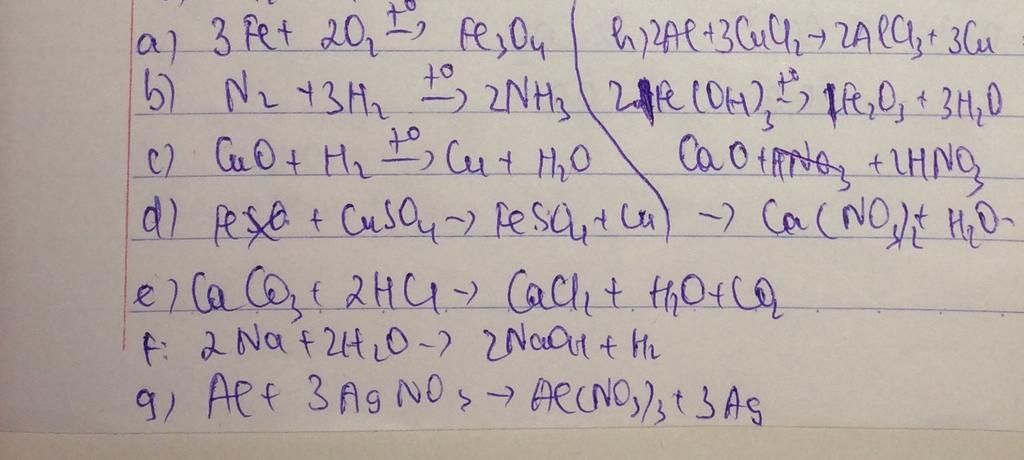 a) 3Fe + 2O₂ →(t°) Fe₃O₄
b) N₂ + 3H₂ →(t°) 2NH₃
c) CuO + H₂ →(t°) Cu + H₂O
d) Fe + CuSO₄ → FeSO₄ + Cu
e) CaCO₃ + 2HCl → CaCl₂ + H₂O + CO₂
f: 2Na + 2H₂O → 2NaOH + H₂
g) Al + 3AgNO₃ → Al(NO₃)₃ + 3Ag
h) 2Al + 3CuCl₂ → 2AlCl₃ + 3Cu
2Fe(OH)₃ →(t°) Fe₂O₃ + 3H₂O
CaO + 2HNO₃
→ Ca(NO₃)₂ + H₂O